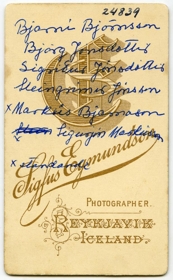 24839
Bjarni Björnsson
Björg Jónsdóttir
Sigríður Jónsdóttir
Steingrímur Jónsson
x Markús Bjarnason
Sigurjón
x standandi
Sigfús Eymundsson
PHOTOGRAPHER.
REYKJAVIK
ICELAND.